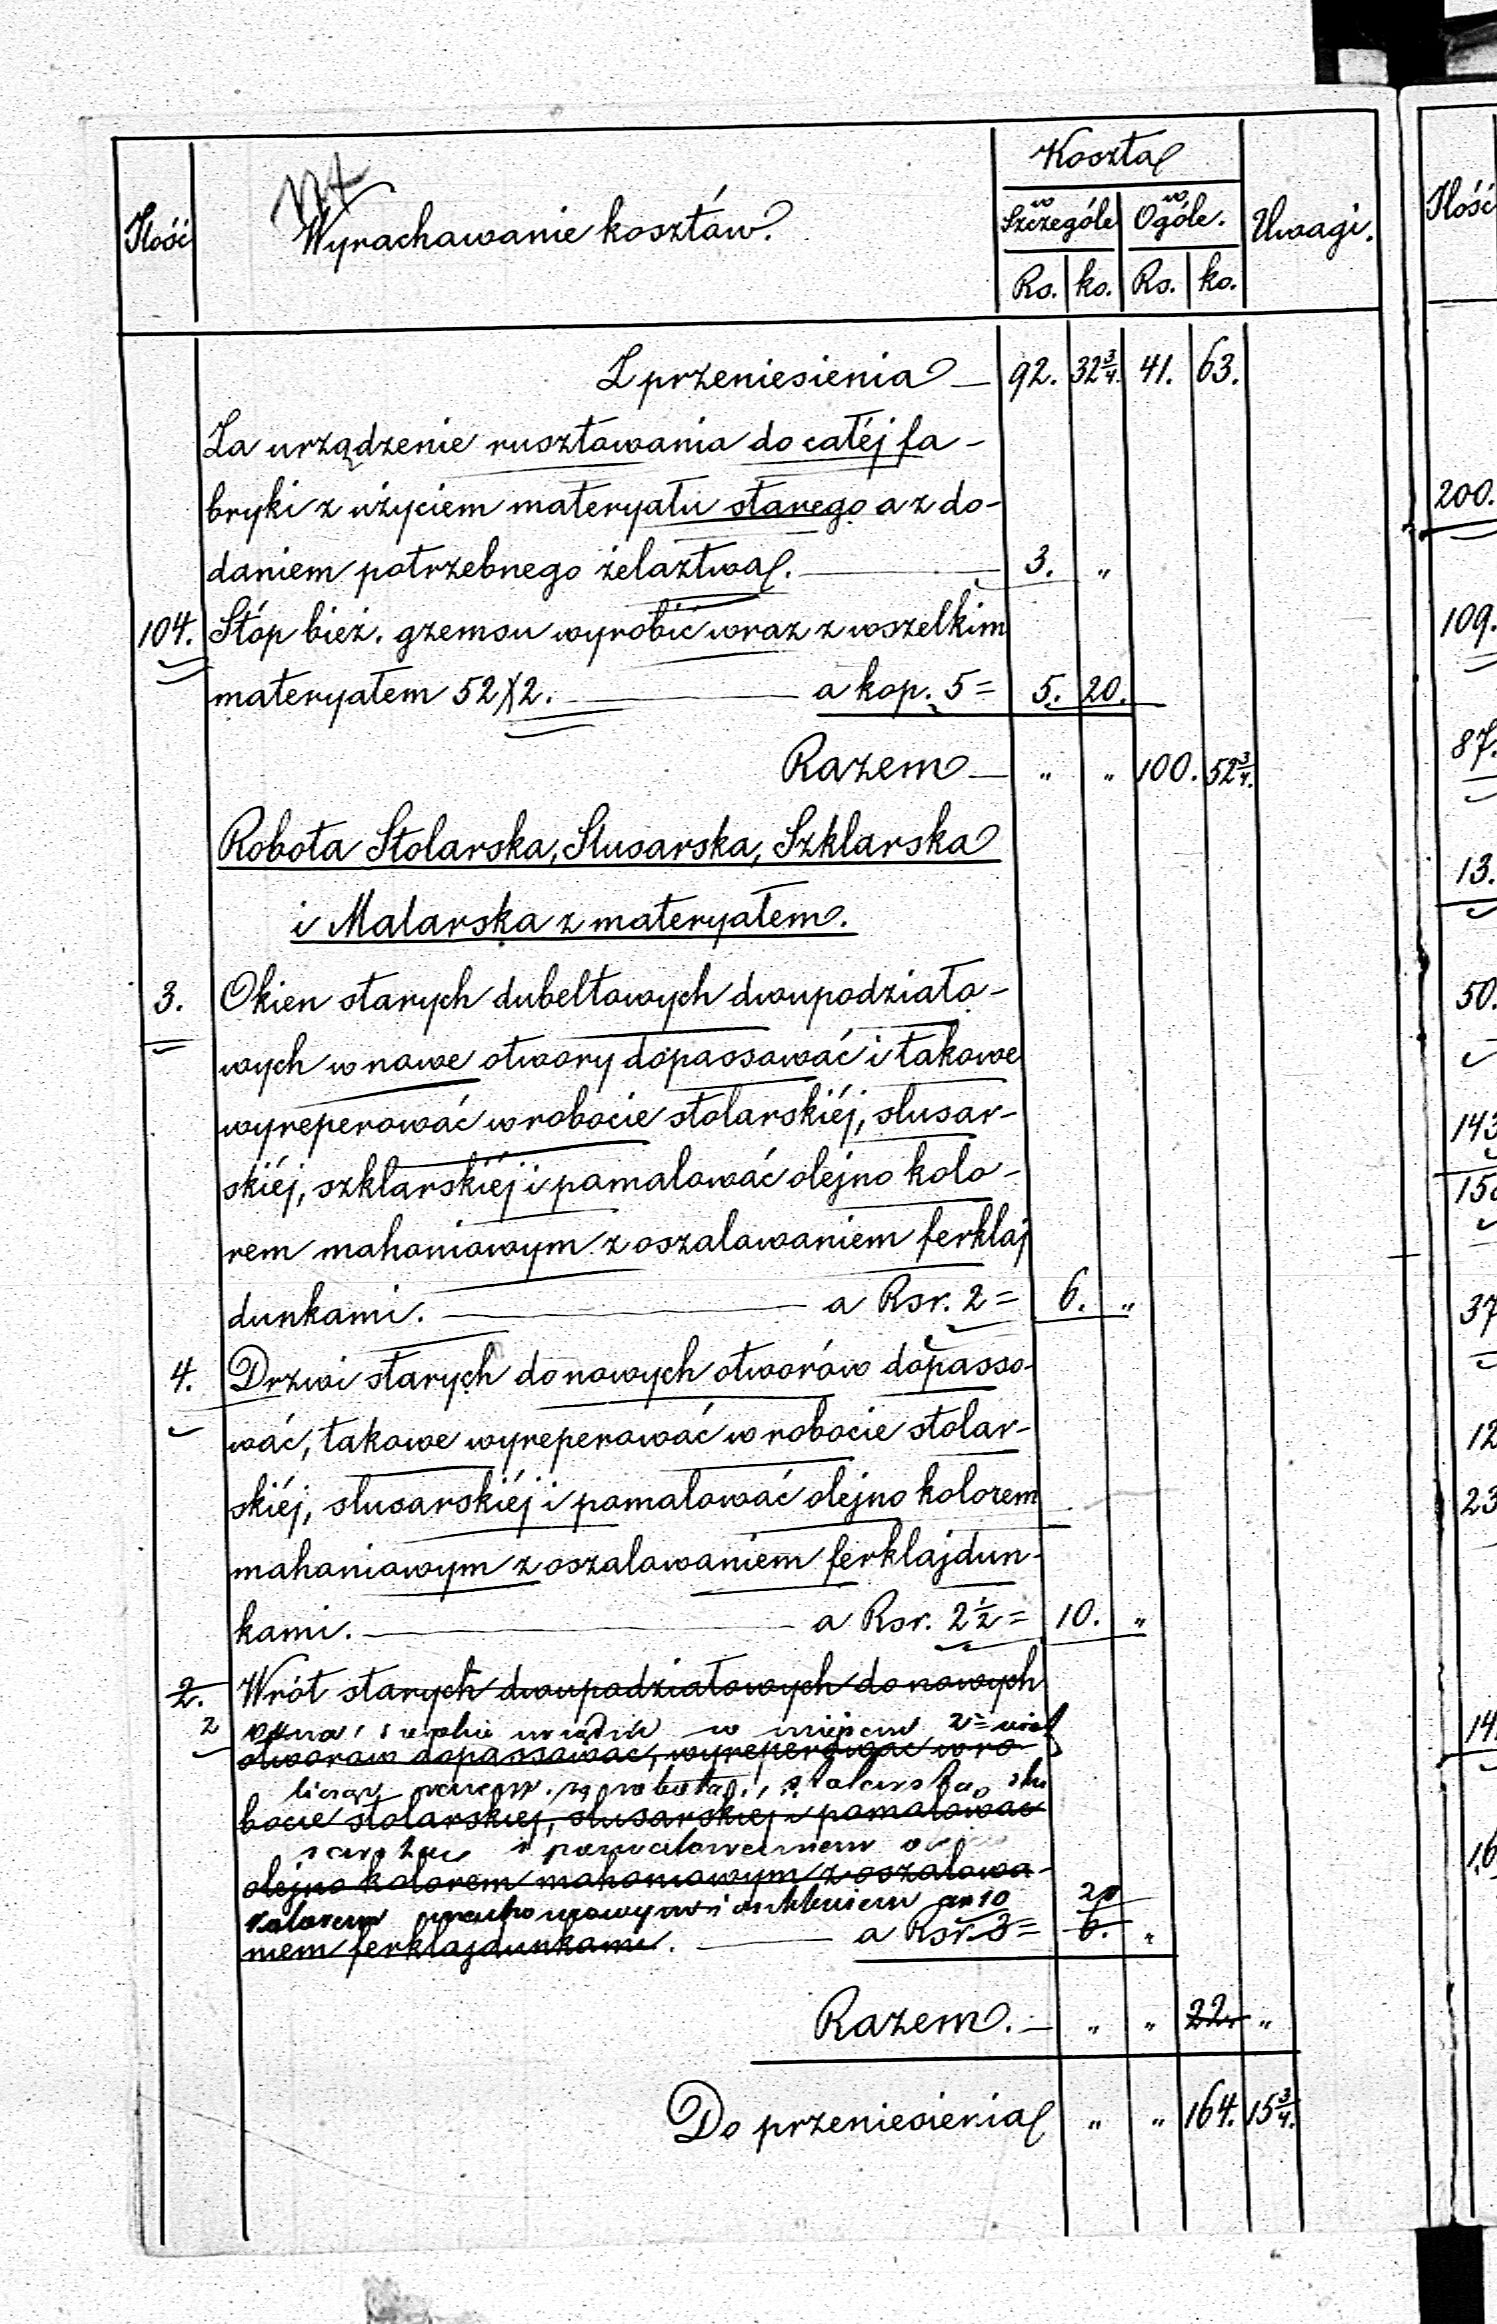 Koszta
Ilość
Wyrachowanie kosztów.
w Szczególe
w Ogóle.
Uwagi.
Rs. ko. Rs. ko.
Z przeniesienia — 92. 32 3/4. 41. 63.
Za urządzenie rusztowania do całéj fa-
bryki z użyciem materyału starego a z do-
daniem potrzebnego żelaztwa. 3. "
104. Stóp bież. gzemsu wyrobić wraz z wszelkim
materyałem 52X2. a kop. 5 = 5. 20.
Razem — " " 100. 52 3/4.
Robota Stolarska, Slusarska, Szklarska
i Malarska z materyałem.
3. Okien starych dubeltowych dwupodziało-
wych w nowe otwory dopassować i takowe
wyreperować w robocie stolarskiéj, slusar-
skiéj, szklarskiéj i pomalować olejno kolo-
rem mahoniowym z oszalowaniem ferklaj
dunkami. a Rsr. 2 = 6. "
4. Drzwi starych do nowych otworów dopasso-
wać, takowe wyreperować w robocie stolar-
skiéj, slusarskiéj i pomalować olejno kolorem
mahoniowym z oszalowaniem ferklajdun-
kami. a Rsr. 2 1/2 = 10. "
2. Wrót starych dwupodziałowych do nowych
2 w miejscu
otworów dopassować, wyreperować w ro
robotą stolarską
bocie stolarskiej, slusarskiej i pomalować
i pomalowaniem
olejno kolorem mahoniowym z oszalowa-
kolorem mahoniowym i 10 20
niem ferklajdunkami. a Rsr. 3 = 6. "
Razem. — " " 22. "
Do przeniesienia " " 164. 15 3/4.
Ilość
200.
109.
87.
13.
50.
143
15
37
12
23
14
16